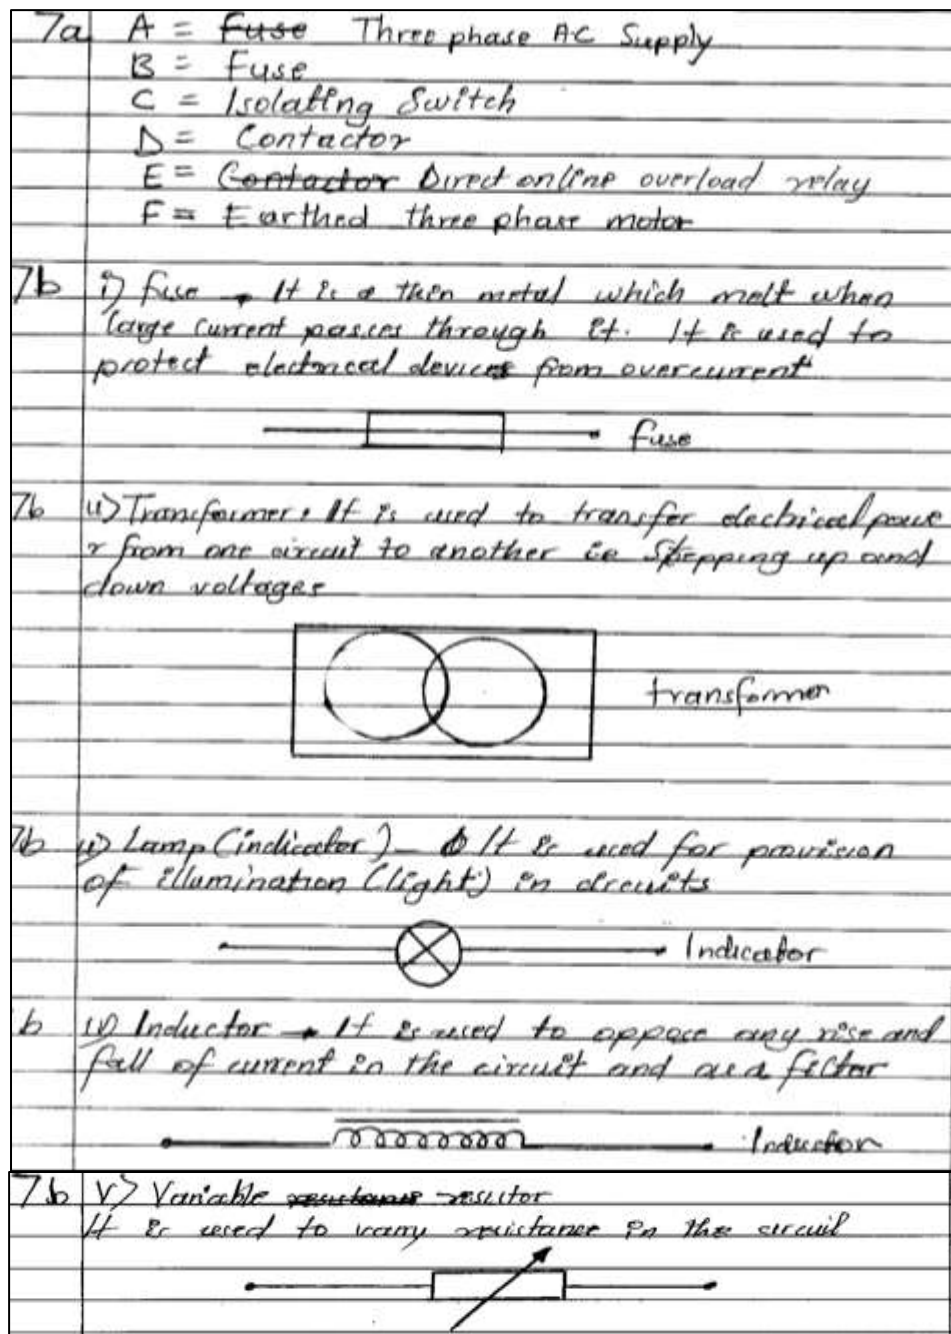 7a A = Fuse Three phase AC Supply
B = Fuse
C = Isolating Switch
D = Contactor
E = Contactor Direct online overload relay
F = Earthed three phase motor
7b i) fuse → It is a thin metal which melt when
large current passes through it. It is used to
protect electrical devices from overcurrent
fuse
7b ii) Transformer. It is used to transfer electrical powe
r from one circuit to another ie Stepping up and
down voltages
transformer
7b iii) Lamp (indicator) – It is used for provision
of illumination (light) in circuits
Indicator
b iv) Inductor → It is used to oppose any rise and
fall of current in the circuit and as a filter
Inductor
7b V) Variable resistance resistor
It is used to vary resistance in the circuit